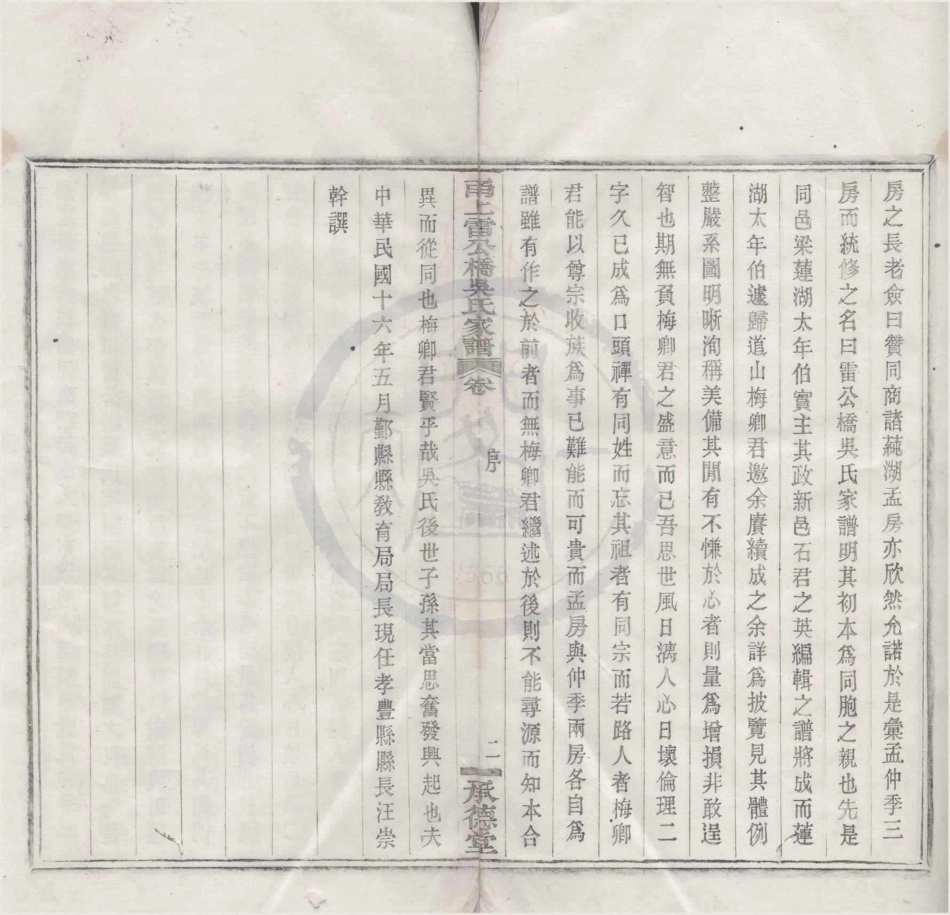 房之長老僉曰贊同商諸蒓湖孟房亦欣然允諾於是彙孟仲季三
房而統修之名曰雷公橋吳氏家譜明其初本爲同胞之親也先是
同邑梁蓮湖太年伯實主其政新邑石君之英編輯之譜將成而蓮
湖太年伯遽歸道山梅卿君邀余賡續成之余詳爲披覽見其體例
整嚴系圖明晰洵稱美備其閒有不慊於心者則量爲增損非敢逞
智也期無負梅卿君之盛意而已吾思世風日漓人心日壞倫理二
字久已成爲口頭禪有同姓而忘其祖者有同宗而若路人者梅卿
君能以尊宗收族爲事已難能而可貴而孟房與仲季兩房各自爲
譜雖有作之於前者而無梅卿君繼述於後則不能尋源而知本合
甬上雷公橋吳氏家譜 卷 序 二 承德堂
異而從同也梅卿君賢乎哉吳氏後世子孫其當思奮發興起也夫
中華民國十六年五月鄞縣縣教育局局長現任孝豐縣縣長汪崇
幹譔